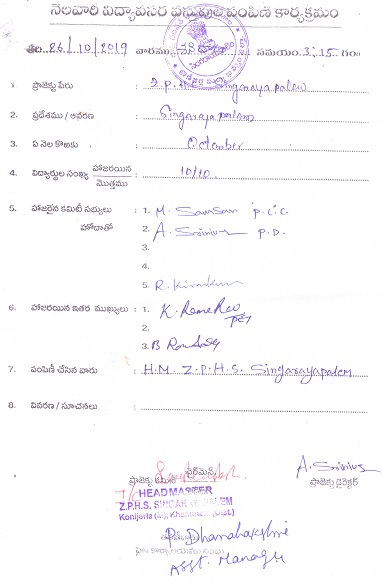 నెలవారీ విద్యావసర వస్తువుల పంపిణీ కార్యక్రమం
తేది 26/10/2019 వారము సమయం: 3:15 గం
1 ప్రాజెక్టు పేరు : Z.P.H.S Singarayapalem
2. ప్రదేశము / ఆవరణ : Singarayapalem
3. ఏ నెల కొఱకు : October
4. విద్యార్థుల సంఖ్య హాజరయిన / మొత్తము : 10/10
5. హాజరైన కమిటీ సభ్యులు : 1. M. P.C.C.
హోదాతో 2. A. Srinivas P.D.
3.
4.
5. R. Kiran
6. హాజరయిన ఇతర ముఖ్యులు : 1. K. Rama Rao
PET
2.
3. B
7. పంపిణీ చేసిన వారు : H.M. Z.P.H.S. Singarayapalem
8. వివరణ / సూచనలు :
ప్రాజెక్టు కమిటీ ఛైర్మెన్
A. Srinivas
ప్రాజెక్టు డైరెక్టర్
HEADMASTER
Z.P.H.S. SINGARAYAPALEM
Konijerla (M), Khammam (Dist.)
P. Dhanalakshmi
Asst. Manager